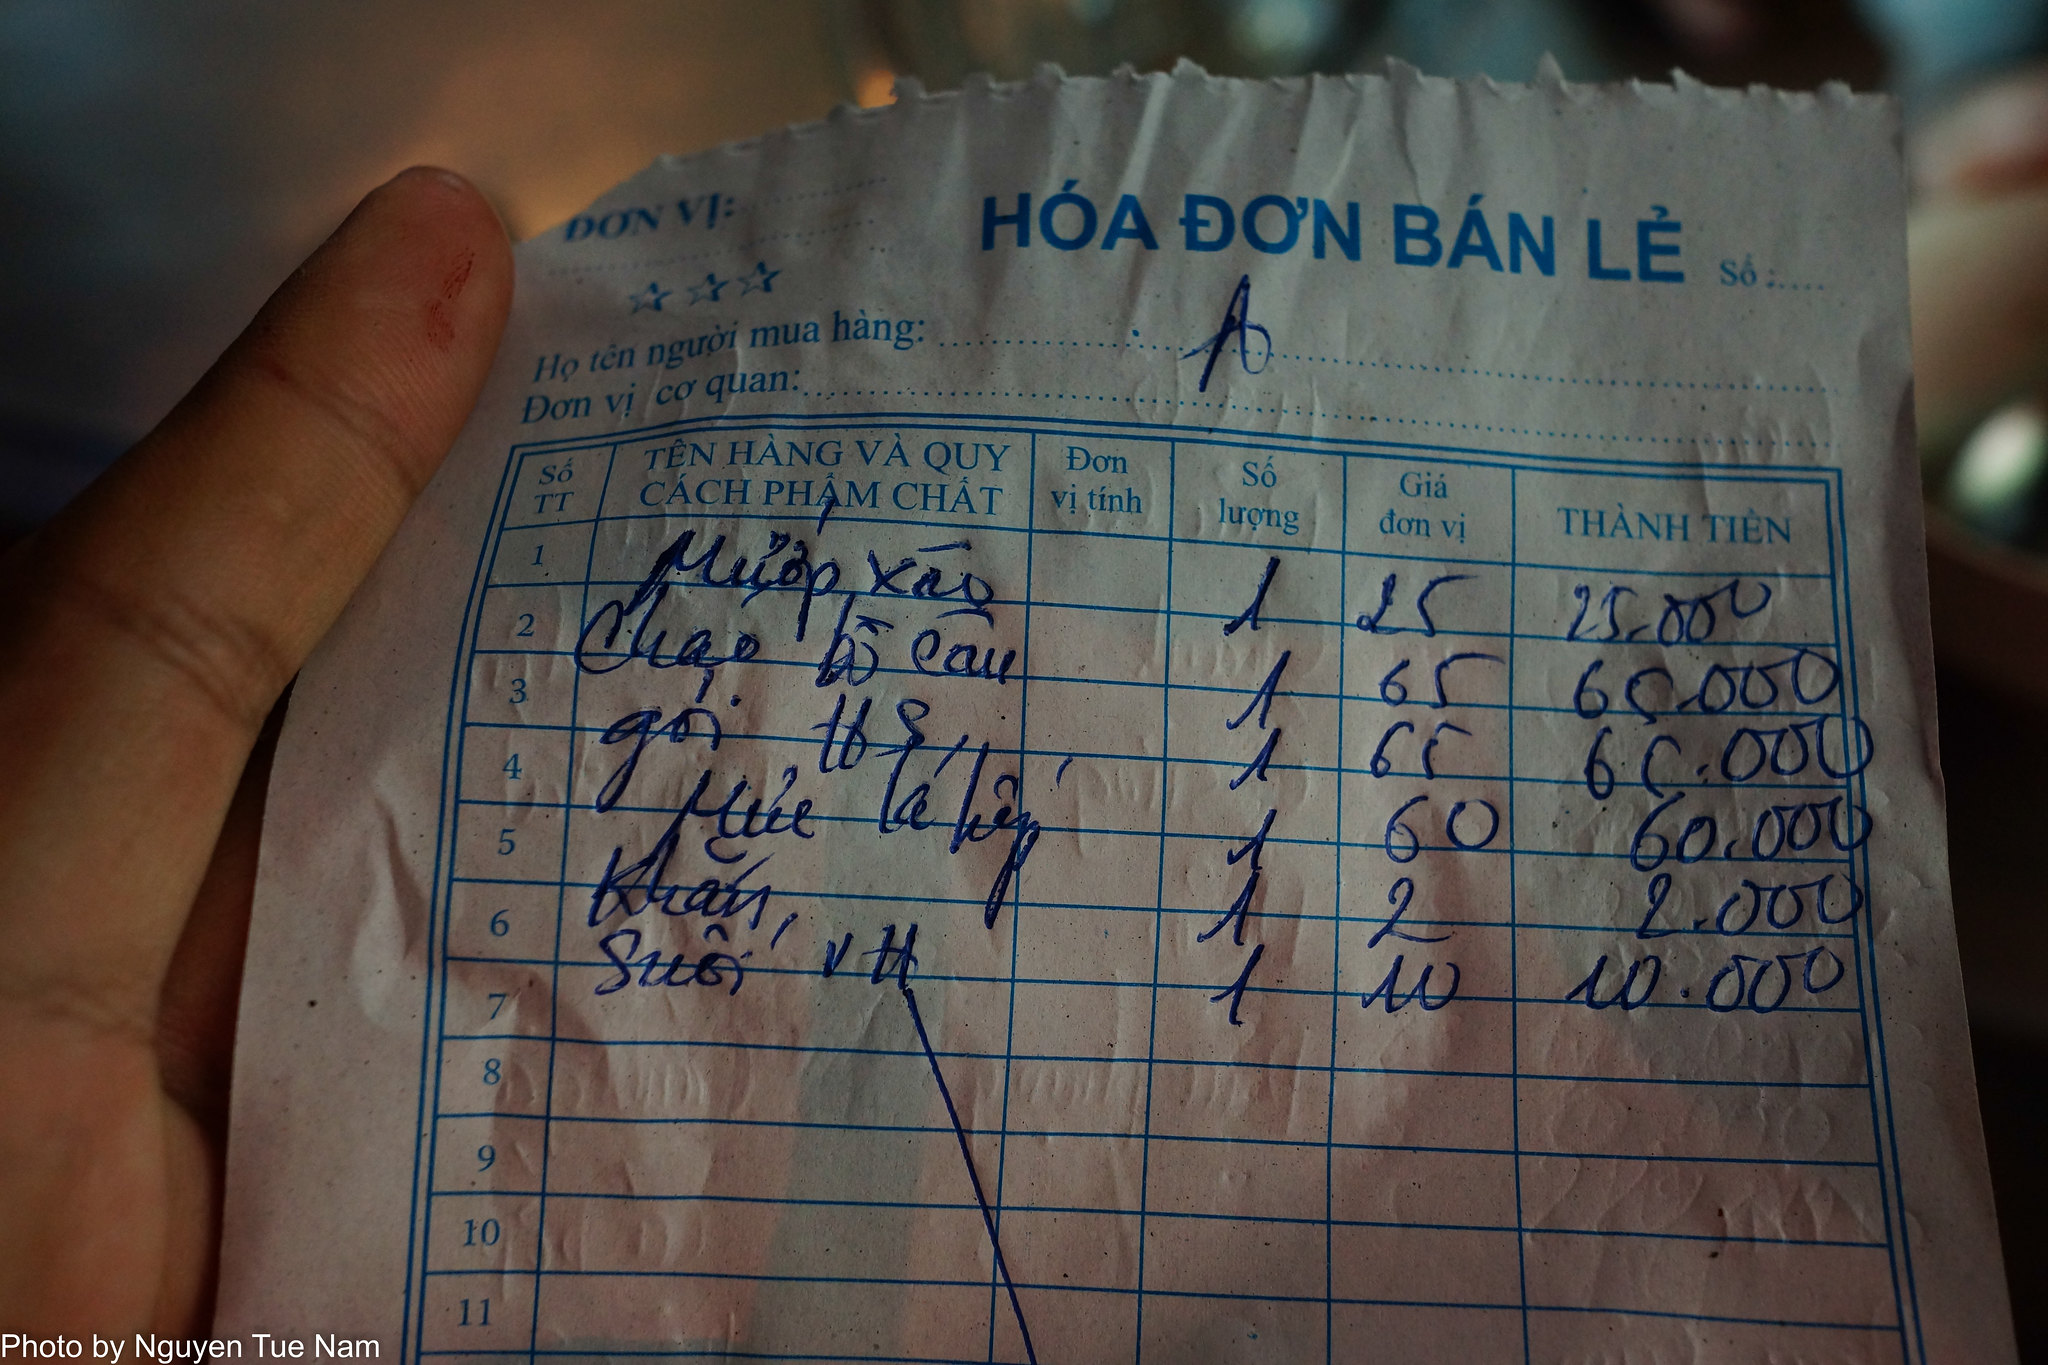 ĐƠN VỊ:
HÓA ĐƠN BÁN LẺ Số :
Họ tên người mua hàng: A
Đơn vị cơ quan:
Số TT TÊN HÀNG VÀ QUY CÁCH PHẨM CHẤT Đơn vị tính Số lượng Giá đơn vị THÀNH TIỀN
1 Mướp xào 1 25 25.000
2 Cháo bồ câu 1 65 65.000
3 gỏi HS 1 65 65.000
4 Mực lá hấp 1 60 60.000
5 Khăn 1 2 2.000
6 Suối VH 1 10 10.000
7
8
9
10
11
Photo by Nguyen Tue Nam